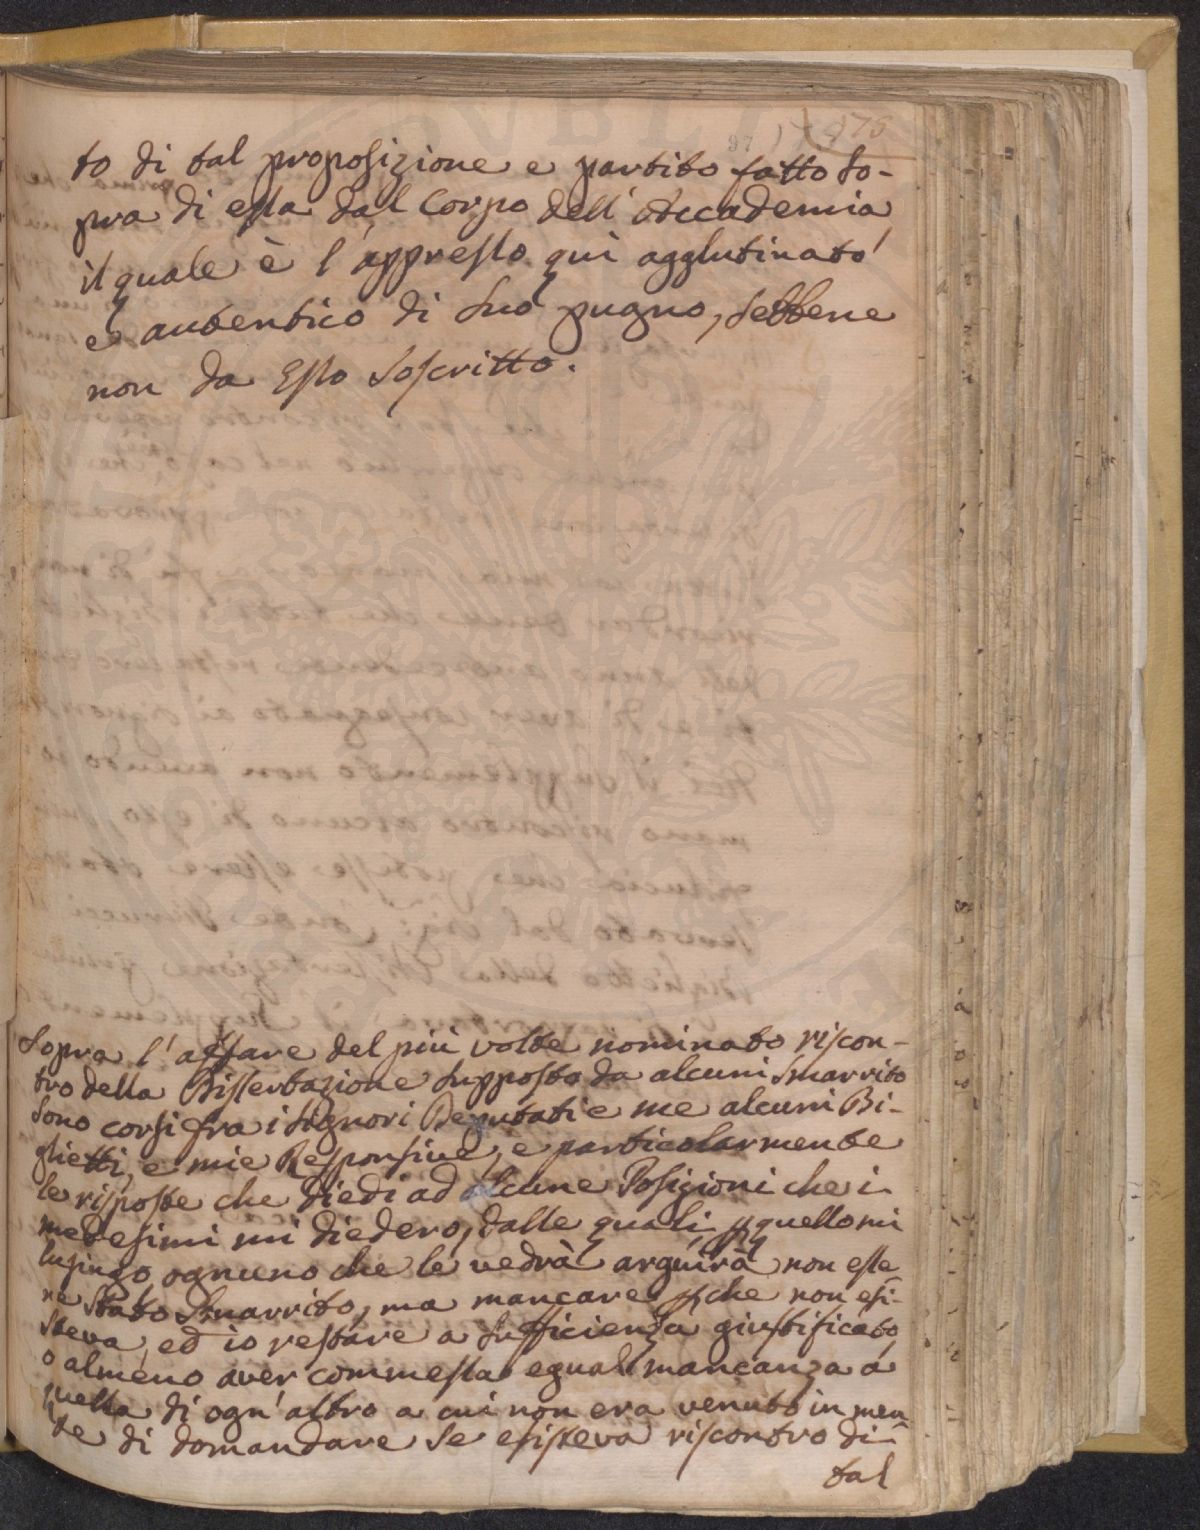 to di tal proposizione e partito fatto so-
pra di essa dal Corpo dell' Accademia
il quale è l'appresso qui agglutinato
e autentico di suo pugno, sebbene
non da Esso soscritto.
Sopra l'affare del più volte nominato riscon-
tro della Dissertazione supposto da alcuni smarrito
sono corsi fra i Signori Deputati e me alcuni Bi-
glietti, e mie Responsive, e particolarmente
le risposte che diedi ad alcune Posizioni che i
medesimi mi diedero, dalle quali p quello mi
lusingo ognuno che le vedrà arguirà non esse-
re stato smarrito, ma mancare pche non esi-
steva, ed io restare a sufficienza giustificato
o almeno aver commessa egual mancanza a
quella di ogn'altro a cui non era venuto in men-
te di domandare se esisteva riscontro di
tal